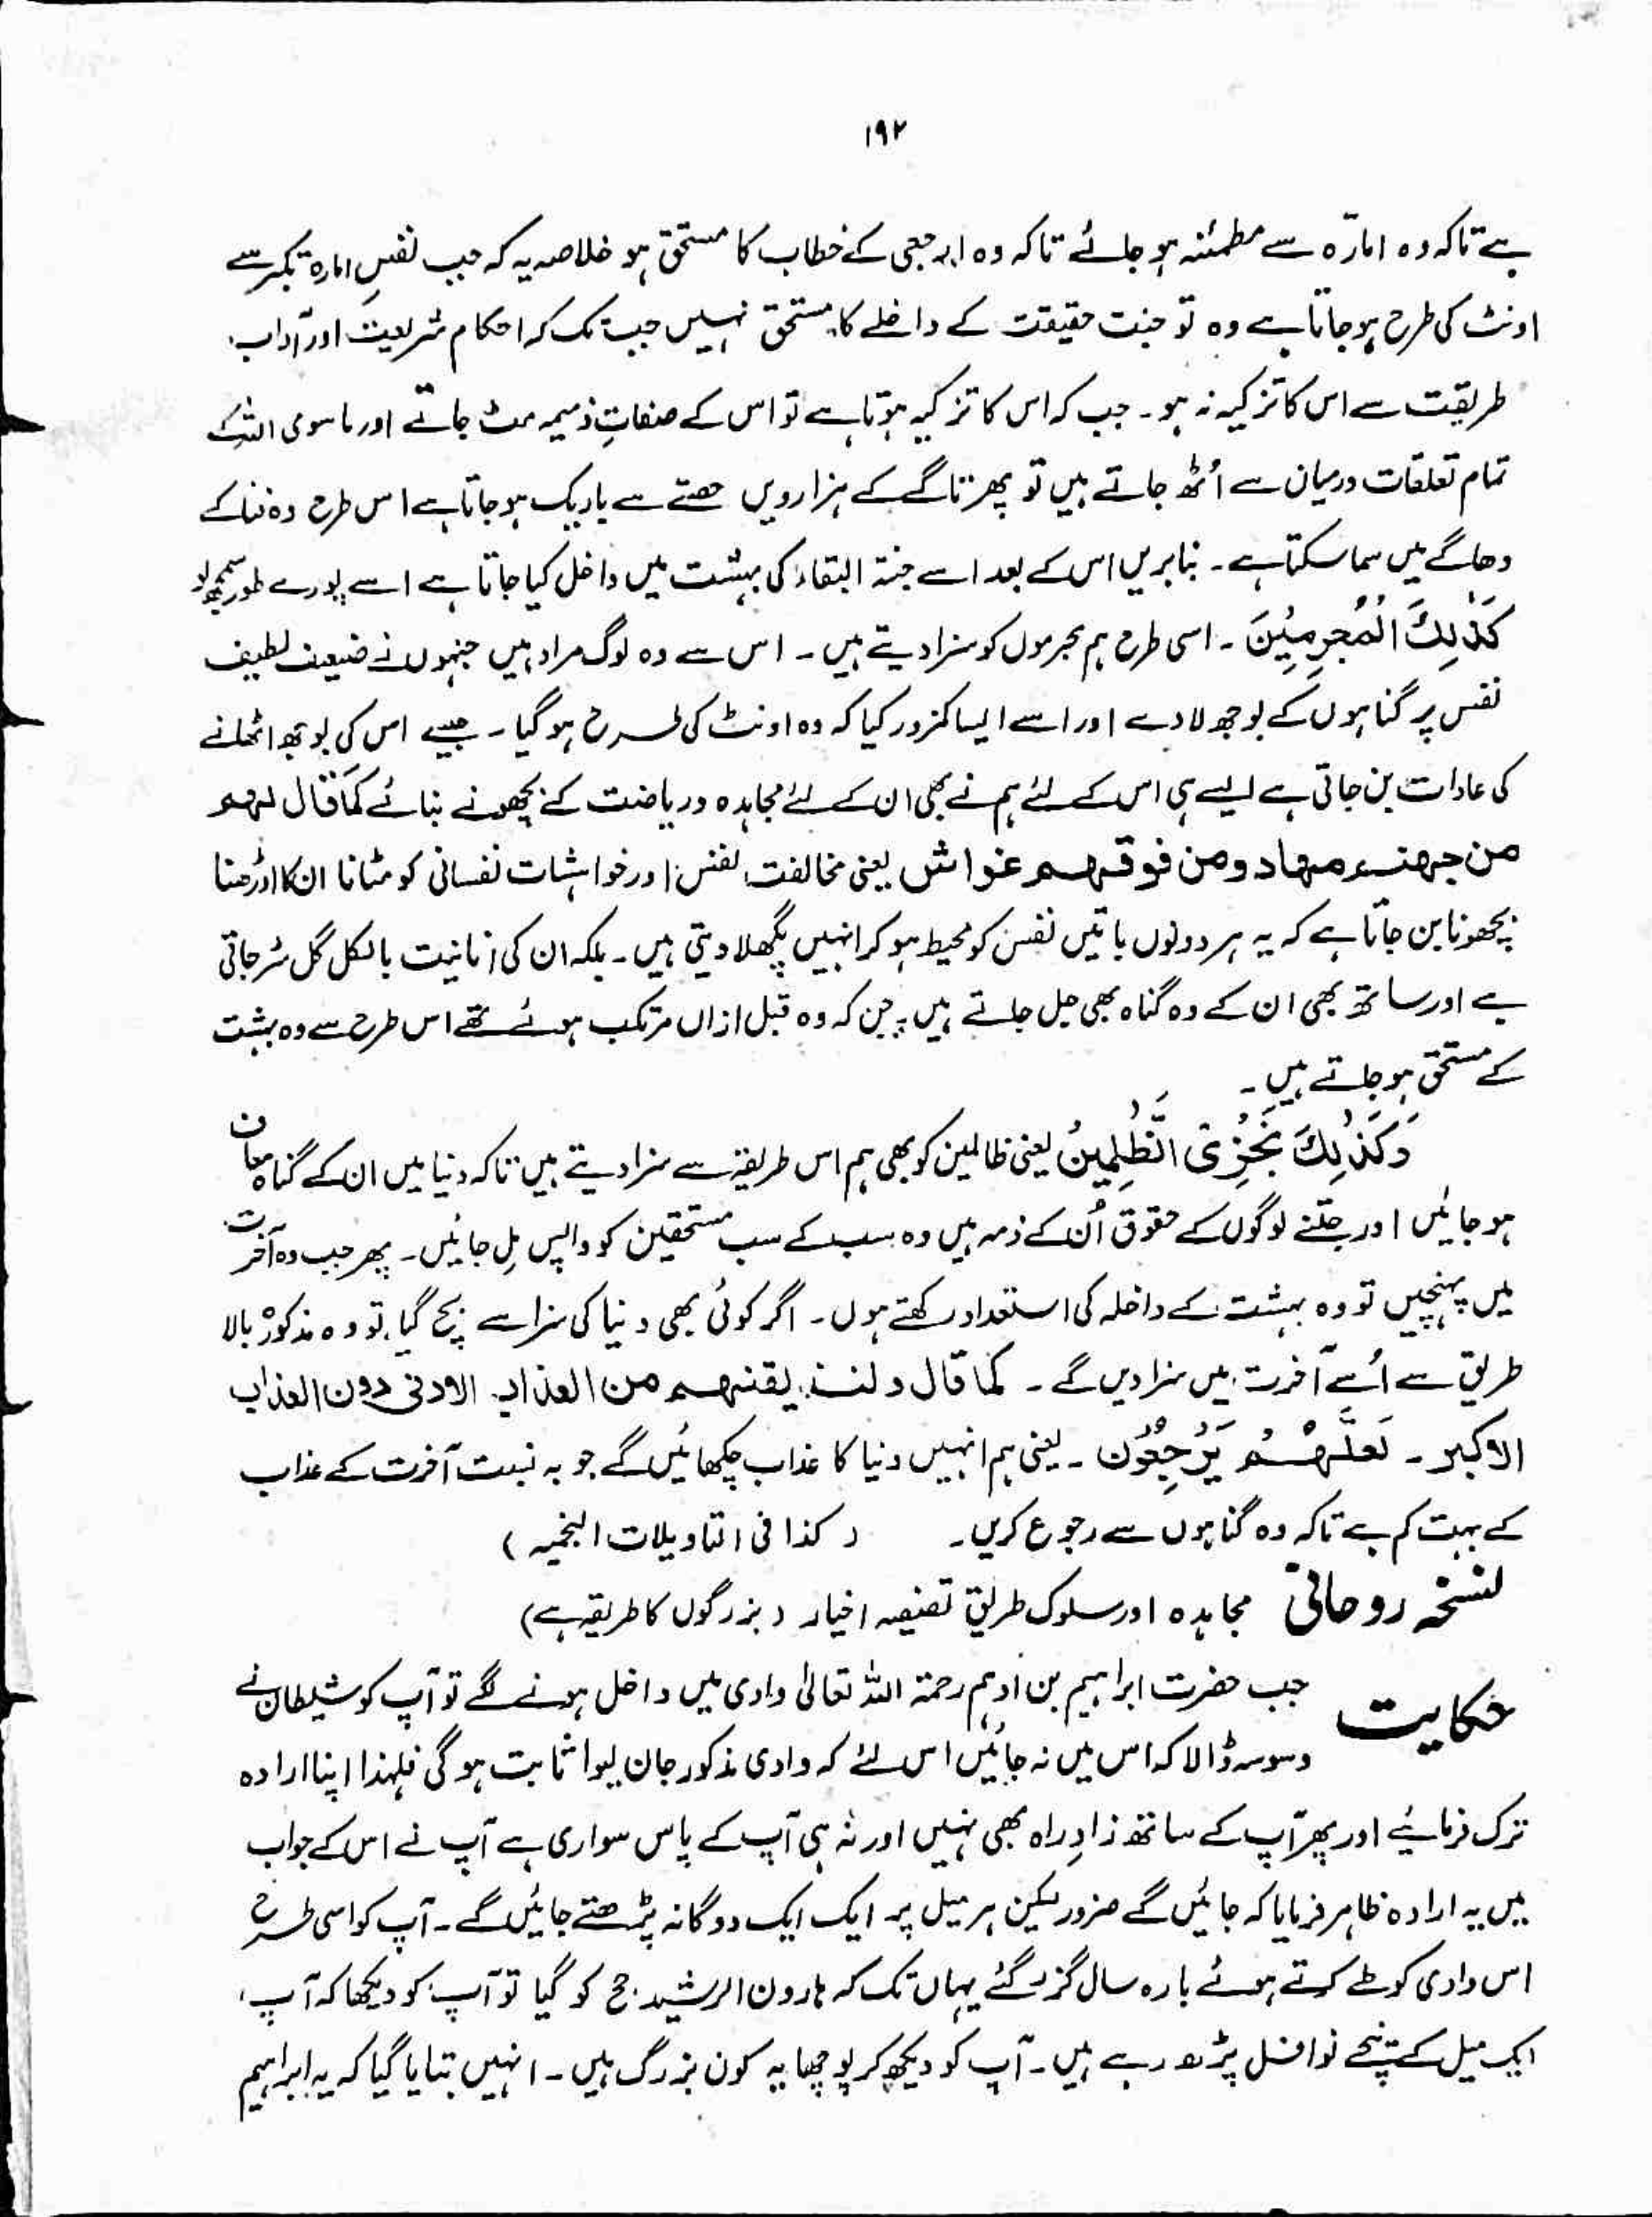 ۱۹۲
ہے تاکہ وہ امارّہ سے مطمئنہ ہو جائے تاکہ وہ ارجعی کے خطاب کا مستحق ہو خلاصہ یہ کہ جب نفسِ امارہ تکبر سے
اونٹ کی طرح ہو جاتا ہے وہ تو جنت حقیقت کے داخلے کا مستحق نہیں جب تک کہ احکام شریعت اور آداب
طریقت سے اس کا تزکیہ نہ ہو۔ جب کہ اس کا تزکیہ ہوتا ہے تو اس کے صفاتِ ذمیمہ مٹ جاتے اور ماسوی اللہ کے
تمام تعلقات درمیان سے اُٹھ جاتے ہیں تو پھر تاگے کے ہزارویں حصّے سے باریک ہو جاتا ہے اس طرح وہ فنا کے
دھاگے میں سما سکتا ہے۔ بنابریں اس کے بعد اسے جنۃ البقاء کی بہشت میں داخل کیا جاتا ہے اسے پورے طور سمجھ لو
کَذٰلِکَ الْمُجْرِمِیْنَ ۔ اسی طرح ہم مجرموں کو سزا دیتے ہیں ۔ اس سے وہ لوگ مراد ہیں جنہوں نے ضعیف لطیف
نفس پر گناہوں کے بوجھ لادے اور اسے ایسا کمزور کیا کہ وہ اونٹ کی طرح ہو گیا ۔ جیسے اس کی بوجھ اٹھانے
کی عادات بن جاتی ہے ایسے ہی اس کے لئے ہم نے بھی ان کے لئے مجاہدہ و ریاضت کے بچھونے بنائے کَمَا قال لہم
من جہنم مہاد ومن فوقہم غواش یعنی مخالفت نفس اور خواہشات نفسانی کو مٹانا ان کا اوڑھنا
بچھونا بن جاتا ہے کہ یہ ہر دونوں باتیں نفس کو محیط ہو کر انہیں پگھلا دیتی ہیں۔ بلکہ ان کی انانیت بالکل گل سڑ جاتی
ہے اور ساتھ بھی ان کے وہ گناہ بھی جل جاتے ہیں جن کہ وہ قبل ازاں مرتکب ہوئے تھے اس طرح سے وہ بہشت
کے مستحق ہو جاتے ہیں ۔
وَکَذٰلِکَ نَجْزِی الظّٰلِمِیْنَ یعنی ظالمین کو بھی ہم اس طریقہ سے سزا دیتے ہیں تاکہ دنیا میں ان کے گناہ معاف
ہو جائیں اور جتنے لوگوں کے حقوق اُن کے ذمہ ہیں وہ سب کے سب مستحقین کو واپس مِل جائیں۔ پھر جب وہ آخرت
میں پہنچیں تو وہ بہشت کے داخلہ کی استعداد رکھتے ہوں ۔ اگر کوئی بھی دنیا کی سزا سے بچ گیا تو وہ مذکورہ بالا
طریق سے اُسے آخرت میں سزا دیں گے ۔ کما قال ولنذیقنہم من العذاب الادنی دون العذاب
الاکبر ۔ لَعَلَّہُمْ یَرْجِعُوْن ۔ یعنی ہم انہیں دنیا کا عذاب چکھائیں گے جو بہ نسبت آخرت کے عذاب
کے بہت کم ہے تاکہ وہ گناہوں سے رجوع کریں۔ (کذا فی التاویلات النجمیہ)
نسخہ روحانی مجاہدہ اور سلوک طریق تصفیہ اخیار (بزرگوں کا طریقہ ہے)
حکایت جب حضرت ابراہیم بن ادہم رحمۃ اللہ تعالیٰ وادی میں داخل ہونے لگے تو آپ کو شیطان نے
وسوسہ ڈالا کہ اس میں نہ جائیں اس لئے کہ وادی مذکور جان لیوا ثابت ہوگی فلہٰذا اپنا ارادہ
ترک فرمائیے اور پھر آپ کے ساتھ زادِ راہ بھی نہیں اور نہ ہی آپ کے پاس سواری ہے آپ نے اس کے جواب
میں یہ ارادہ ظاہر فرمایا کہ جائیں گے ضرور لیکن ہر میل پر ایک ایک دوگانہ پڑھتے جائیں گے۔ آپ کو اسی طرح
اس وادی کو طے کرتے ہوئے بارہ سال گزر گئے یہاں تک کہ ہارون الرشید حج کو گیا تو آپ کو دیکھا کہ آپ
ایک میل کے نیچے نوافل پڑھ رہے ہیں ۔ آپ کو دیکھ کر پوچھا یہ کون بزرگ ہیں ۔ انہیں بتایا گیا کہ یہ ابراہیم